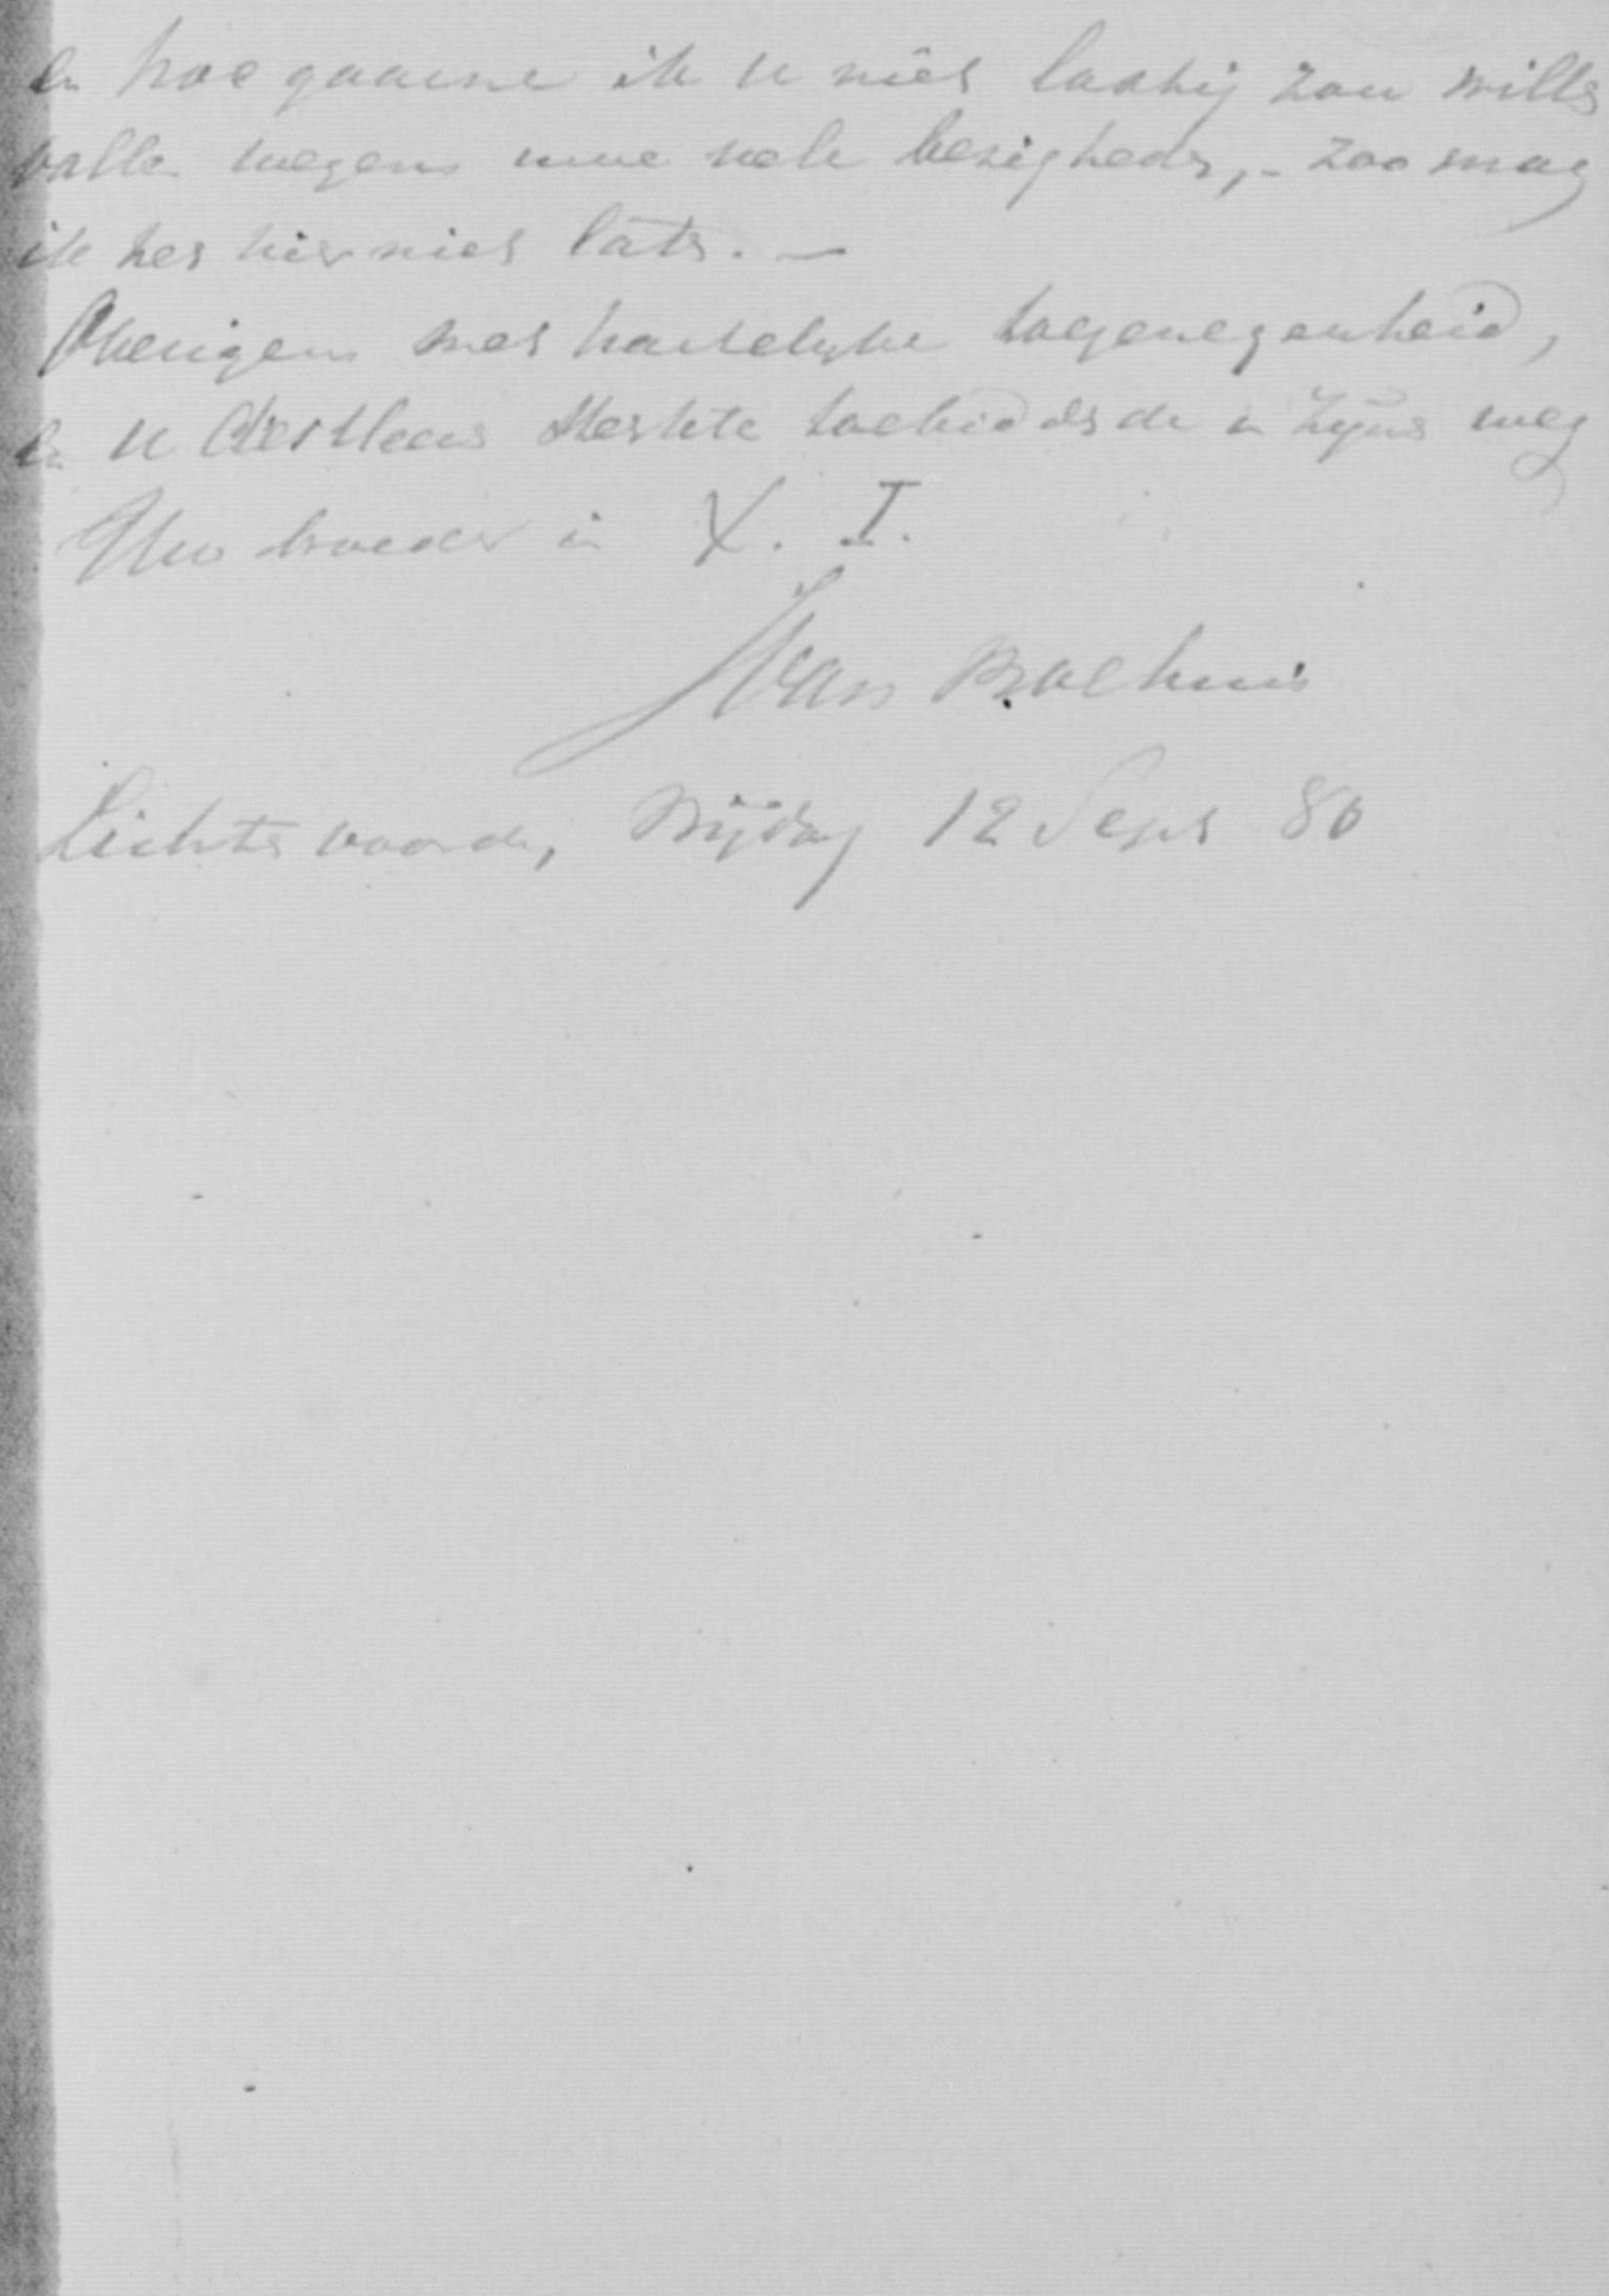 En hoe gaarne ik U niet lastig zou willen
vallen wegens uwe vele bezigheden, - zoo mag
ik het hier niet laten. -
Overigens met hartelyke toegenegenheid,
en U des Heeren sterkte toebiddende in Zijne weg
Uw broeder in X. I.
Lichtevoorde, Vrijdag 12 Sept 80